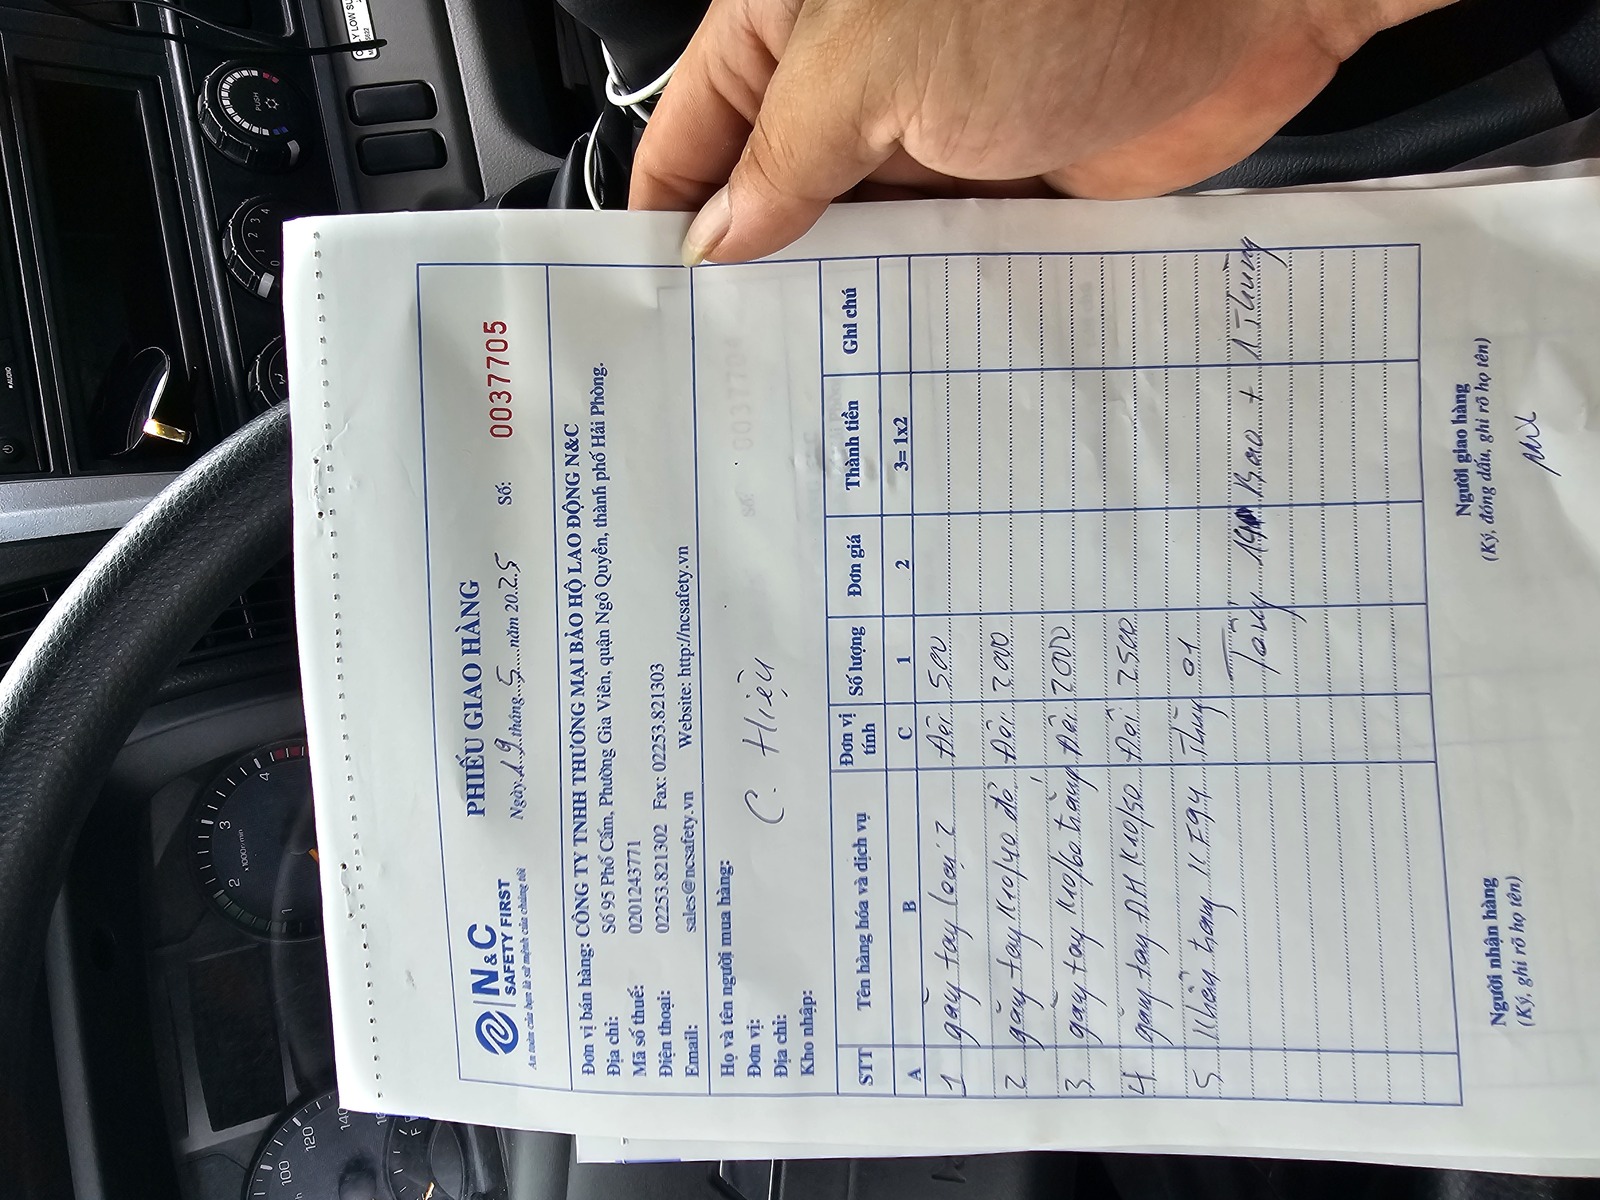 N&C
SAFETY FIRST
An toàn của bạn là sứ mệnh của chúng tôi
PHIẾU GIAO HÀNG
Ngày 19 tháng 5 năm 2025
Số: 0037705
Đơn vị bán hàng: CÔNG TY TNHH THƯƠNG MẠI BẢO HỘ LAO ĐỘNG N&C
Địa chỉ: Số 95 Phố Cấm, Phường Gia Viên, quận Ngô Quyền, thành phố Hải Phòng.
Mã số thuế: 0201243771
Điện thoại: 02253.821302 Fax: 02253.821303
Email: sales@ncsafety.vn Website: http://ncsafety.vn
Họ và tên người mua hàng:
Đơn vị: C. Hiệu
Địa chỉ:
Kho nhập:
STT Tên hàng hóa và dịch vụ Đơn vị tính Số lượng Đơn giá Thành tiền Ghi chú
A B C 1 2 3= 1x2
1 găng tay loại 2 Đôi 500
2 găng tay K10/40 đỏ Đôi 2000
3 găng tay K10/60 trắng Đôi 2000
4 găng tay ĐH K10/50 Đôi 2500
5 Khẩu trang KF94 Thùng 01
Tổng 14 Bao + 1 Thùng
Người nhận hàng
(Ký, ghi rõ họ tên)
Người giao hàng
(Ký, đóng dấu, ghi rõ họ tên)
PUSH
0 1 2 3 4
AUDIO
1 2 3 4
x1000r/min
100 120 140
F